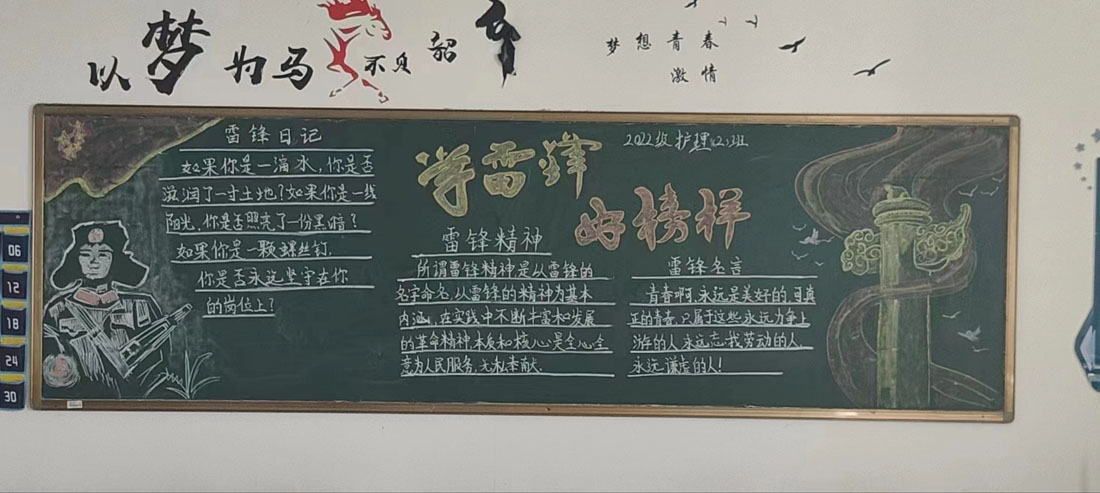 以梦为马 不负韶华
梦想青春
激情
雷锋日记
如果你是一滴水,你是否
滋润了一寸土地?如果你是一线
阳光,你是否照亮了一份黑暗?
如果你是一颗螺丝钉,
你是否永远坚守在你
的岗位上?
学雷锋
好榜样
2022级护理(2)班
雷锋精神
所谓雷锋精神是从雷锋的
名字命名,从雷锋的精神为基本
内涵,在实践中不断丰富和发展
的革命精神,本质和核心是全心全
意为人民服务,无私奉献.
雷锋名言
青春啊,永远是美好的,可真
正的青春,只属于这些永远力争上
游的人,永远忘我劳动的人,
永远谦虚的人!
06
12
18
24
30